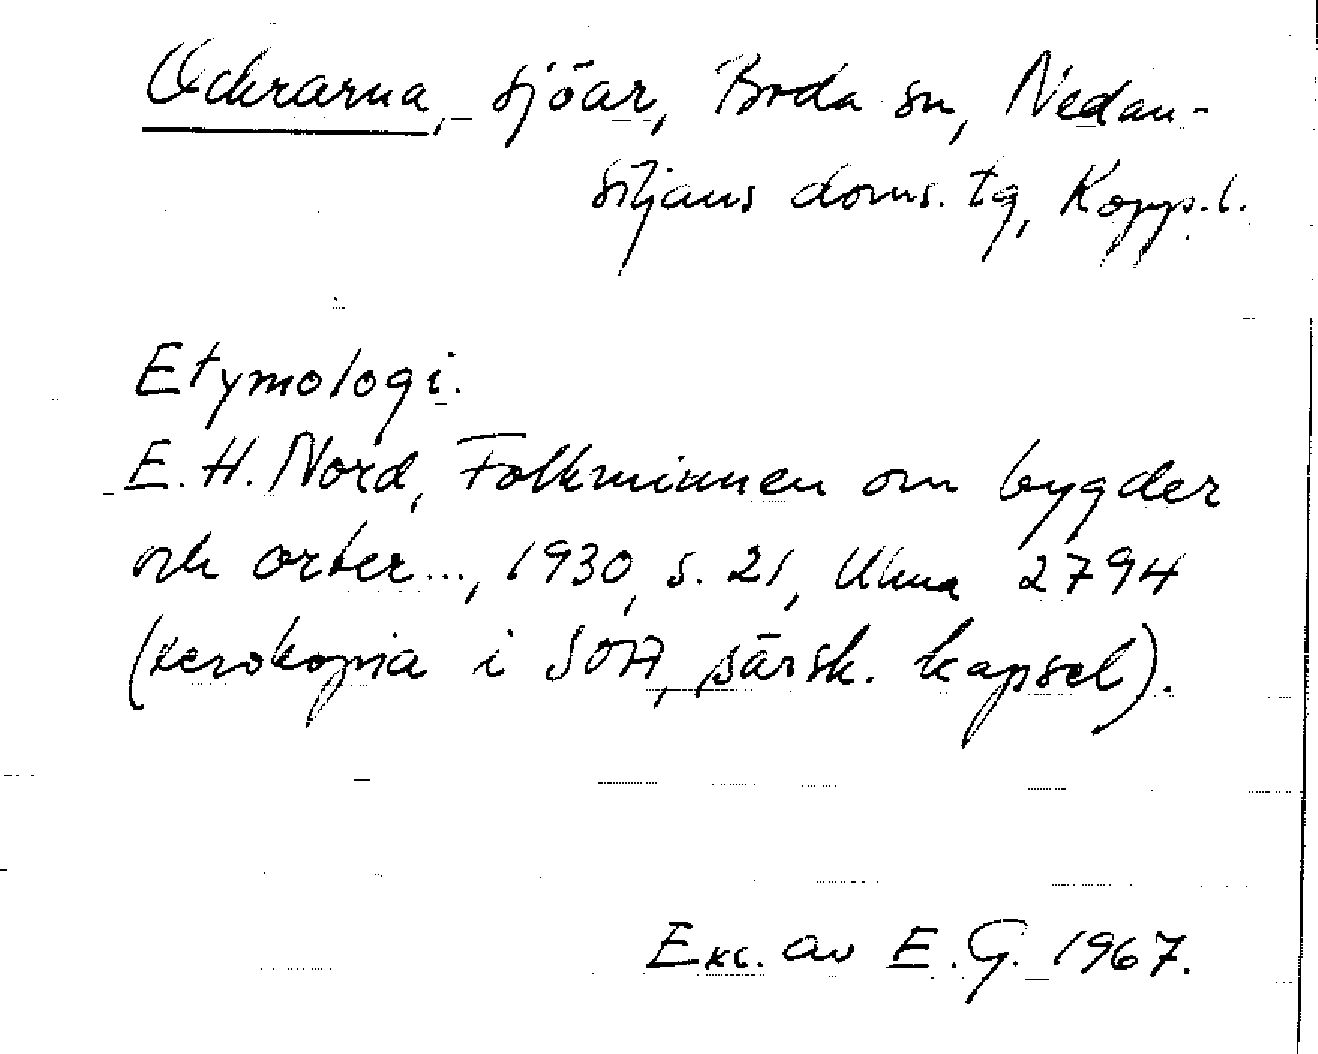 Ockrarna, sjöar, Boda sn, Nedan-
siljans doms. tg, Kopp. l.
Etymologi.
E. H. Nord, Folkminnen om bygder
och orter..., 1930, s. 21, Ulma 2794
(xerokopia i SOA, särsk. kapsel).
Exc. av E. G. 1967.